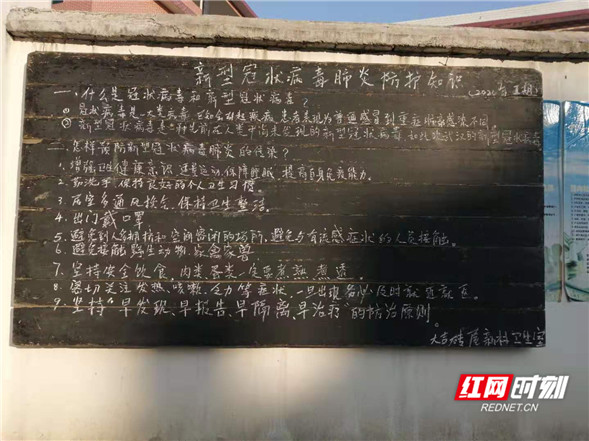 新型冠状病毒肺炎防护知识
一.什么是冠状病毒和新型冠状病毒？
(2020年 期)
①冠状病毒是一大类病毒 已知会引起疾病 患者表现为普通感冒到重症肺部感染不同。
②新型冠状病毒是一种先前在人类中尚未发现的新型冠状病毒 的新型冠状病毒
二.怎样预防新型冠状病毒肺炎的传染？
1.增强卫生健康意识,适量运动.保障睡眠,提高自身免疫能力。
2.勤洗手.保持良好的个人卫生习惯。
3.居室多通风换气.保持卫生整洁。
4.出门戴口罩
5.避免到人多拥挤和空间密闭的场所,避免与有流感症状的人员接触。
6.避免接触野生动物.家禽家兽
7.坚持安全饮食,肉类蛋类一定要煮熟煮透。
8.密切关注发热.咳嗽.乏力等症状,一旦出现务必及时就近就医。
9.坚持“早发现.早报告.早隔离.早治疗”的防治原则。
卫生室
红网时刻
REDNET.CN